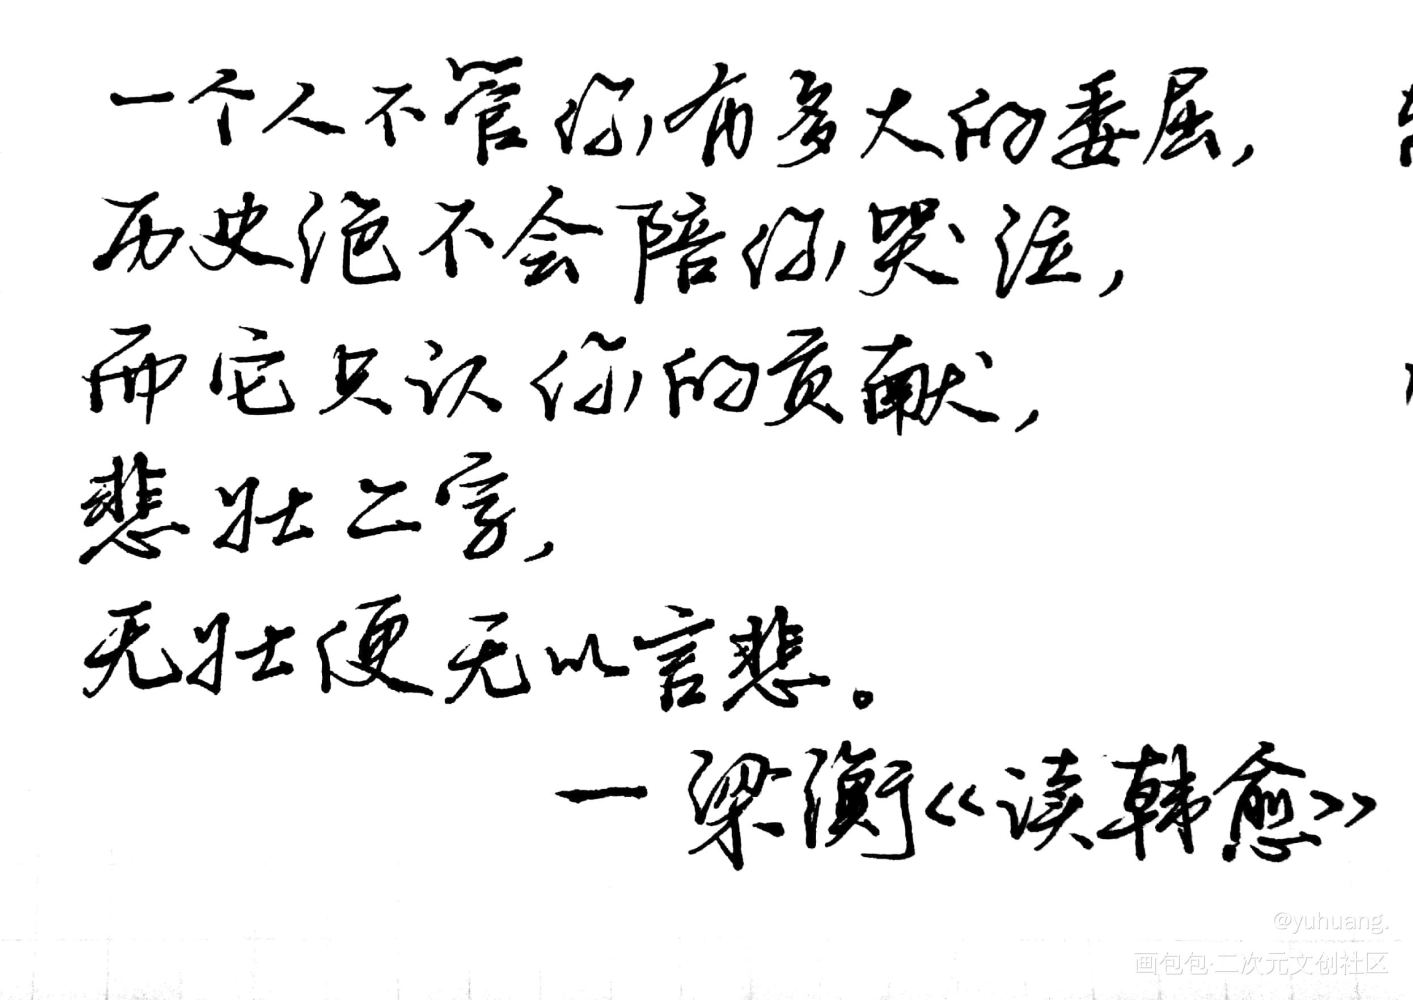 一个人不管你有多大的委屈，
历史绝不会陪你哭泣，
而它只认你的贡献，
悲壮二字，
无壮便无以言悲。
一梁衡《读韩愈》
@yuhuang.
画包包·二次元文创社区